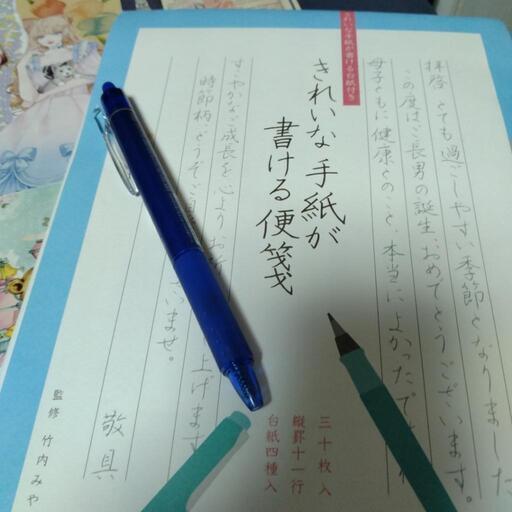 きれいな手紙が書ける台紙付き
拝啓 とても過ごしやすい季節となりました
この度はご長男の誕生、おめでとうございます。
母子ともに健康とのこと、本当によかったです
きれいな手紙が
書ける便箋
すこやかなご成長を心よりお
上げます
時節柄、どうぞご自
いませ。
敬具
三十枚入
縦罫十一行
台紙四種入
監修 竹内みや